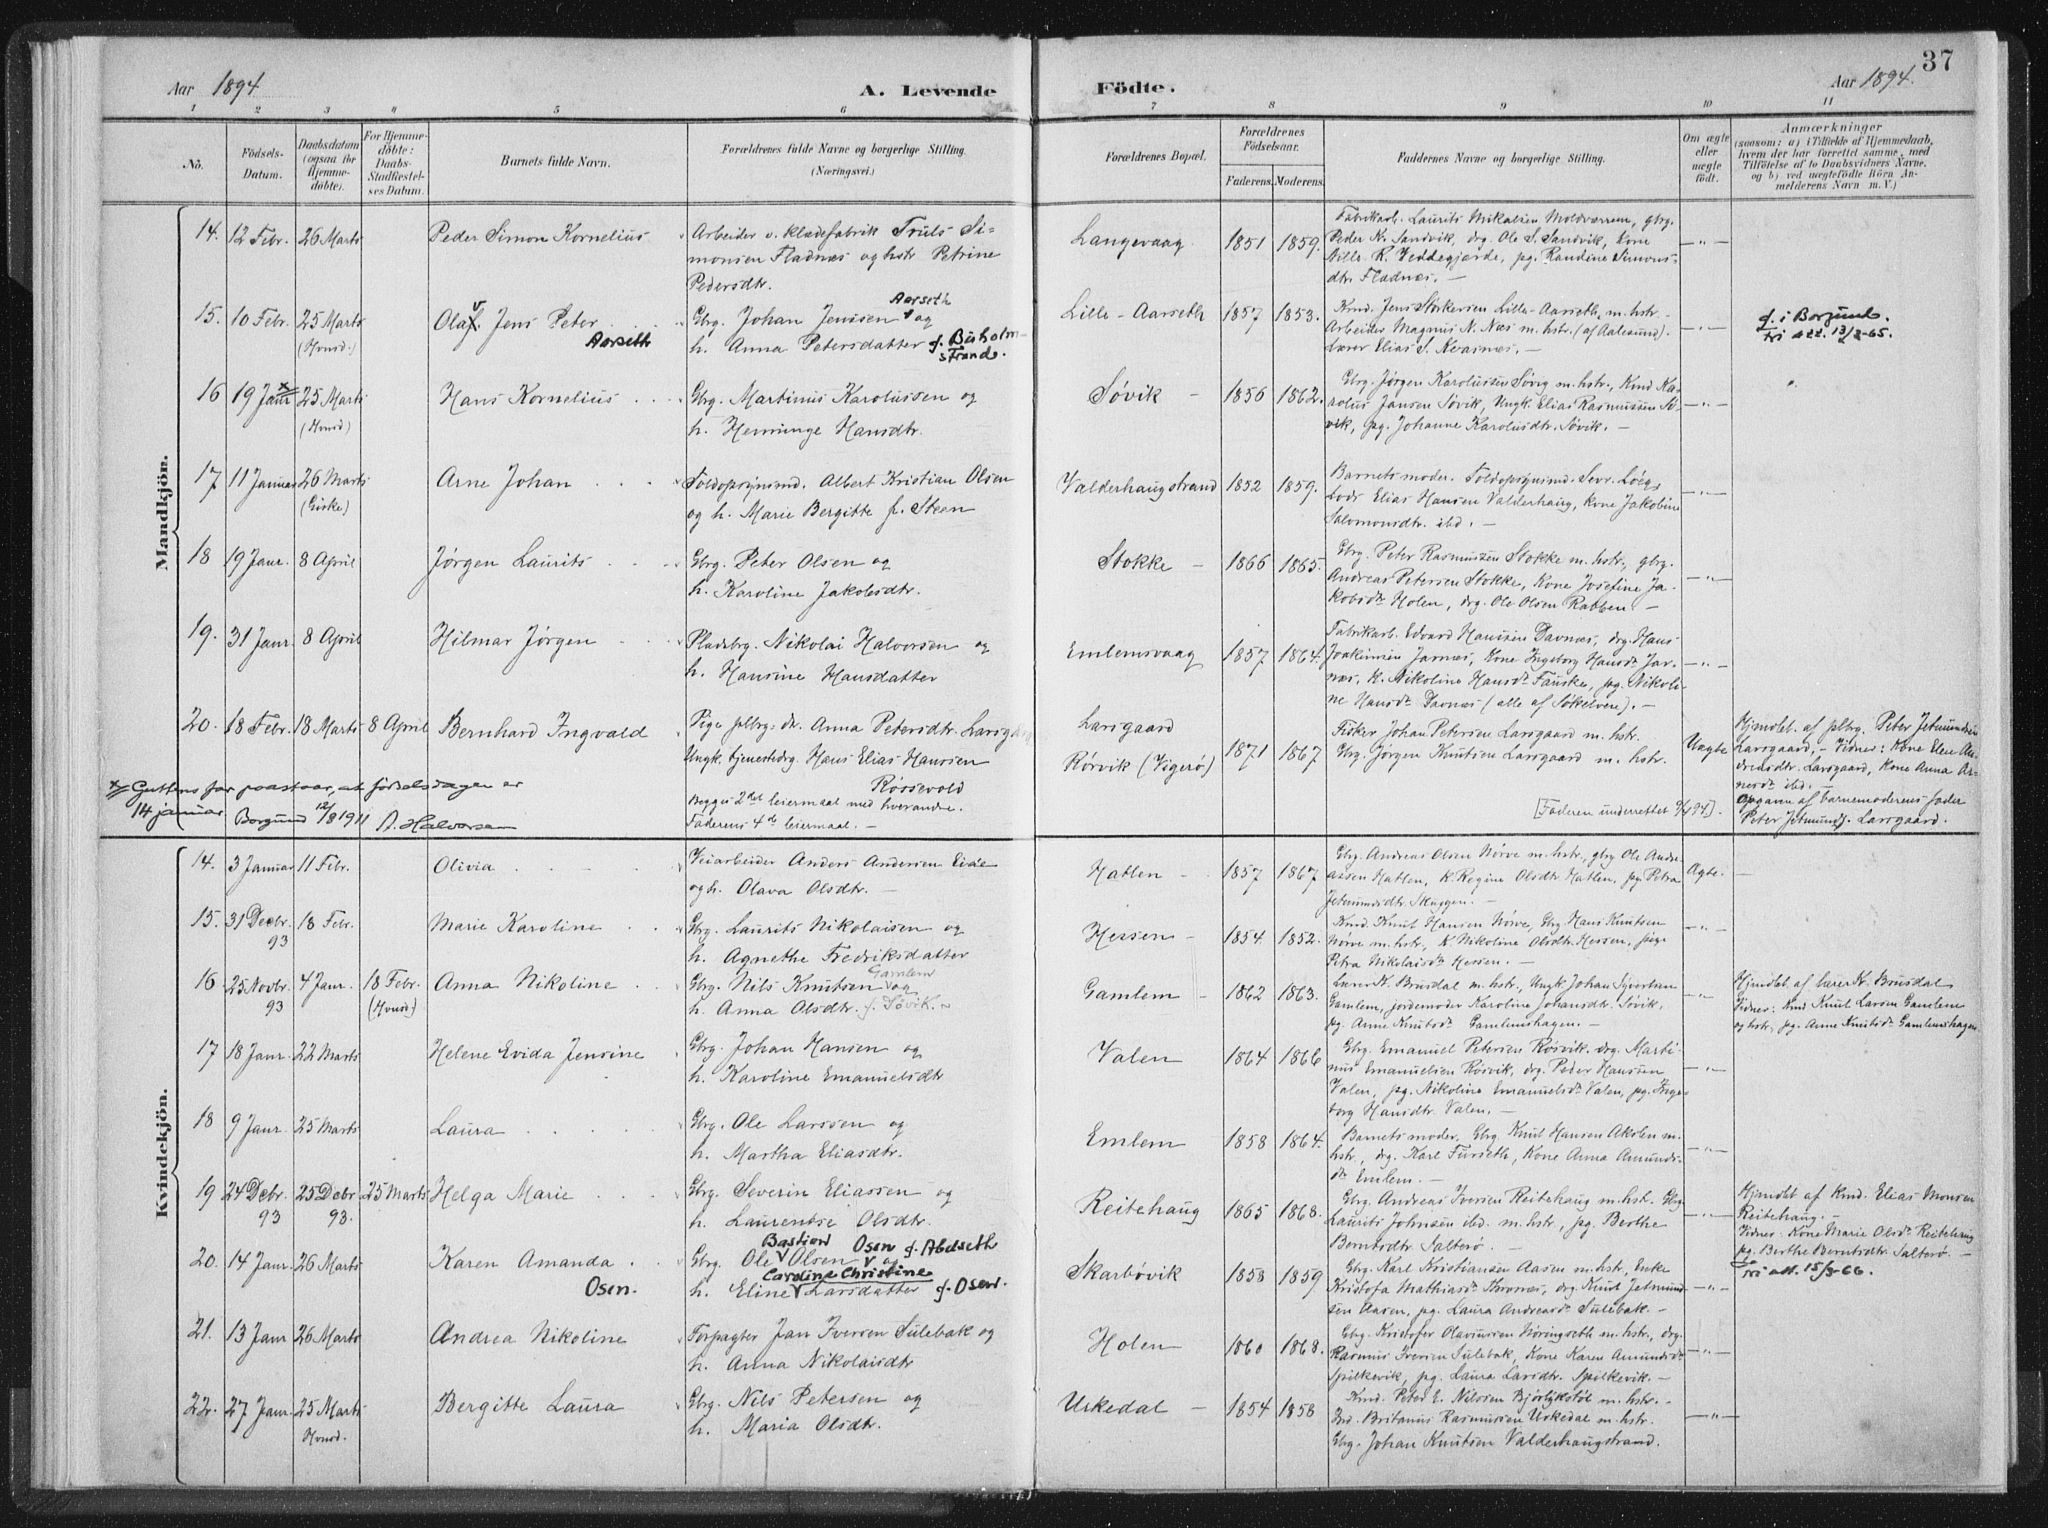 37
Aar 1894
A. Levende
Födte.
Aar 1894.
1 2 3 4 5 6 7 8 9 10 11
No.
Födsels-Datum.
Daabsdatum (ogsaa for Hjemmedöbte).
For Hjemmedöbte: Daabs-Stadfæstelses Datum.
Barnets fulde Navn.
Forældrenes fulde Navne og borgerlige Stilling.
(Næringsvei.)
Forældrenes Bopæl.
Forældrenes Födselsaar.
Faderens. Moderens.
Faddernes Navne og borgerlige Stilling.
Om ægte eller uægte födt.
Anmærkninger
(saasom: a) i Tilfælde af Hjemmedaab, hvem der har forrettet samme, med Tilföielse af to Daabsvidners Navne, og b) ved uægtefödte Börn Anmelderens Navn m. V.)
Mandkjön.
14. 12 Febr. 26 Marts Peder Simon Kornelius
Arbeider v. klædefabrik Truls Si-
monsen Fladnæs og hstr Petrine
Pedersdtr.
Langevaag 1851 1859.
Fabrikarb. Laurits Mikalsen Moldværrem, gbrg.
Peder K. Sandvik, drg. Ole S. Sandvik, kone
Nille R. Veddegjærde, pg. Randine Simons-
dtr. Fladnæs. —
—"—
15. 10 Febr. 25 Marts (Hovsd.) Olaf Jens Peter Aarseth
Gbrg. Johan Jenssen Aarseth og
h. Anna Petersdatter f. Buholm-
strand.
Lille-Aarseth 1857 1853.
Kmd. Jens Stokersen Lille-Aarseth, m. hstr. -
Arbeider Magnus N. Næs m. hstr. (af Aalesund).
Lærer Elias S. Kvasnæs. —
f. i Borgund.
Tri att. 13/2-65.
16 19 Janr x 25 Marts (Hovsd) Hans Kornelius
Gbrg. Martinus Karolussen og
h. Henninge Hansdtr.
Søvik 1856 1862.
Gbrg. Jørgen Karolussen Søvig m. hstr., Kmd Ka-
rolus Jansen Søvik, Ungk. Elias Rasmussen Sø-
vik, pg. Johanne Karolusdtr. Søvik. —
—"—
17 11 Januar 26 Marts (Giske) Arne Johan
Toldopsynsmd. Albert Kristian Olsen
og h. Marie Bergitte f. Steen
Valderhaugstrand 1852 1859.
Barnets moder. Toldopsynsmd. Sevr. Løeg,
Lods Elias Hansen Valderhaug, kone Jakobine
Salomonsdtr. ibd. —
—"—
18 19 Janr. 8 April Jørgen Laurits
Gbrg. Peter Olsen og
h. Karoline Jakobsdtr.
Stokke 1866 1865.
Gbrg. Peter Rasmussen Stokke m. hstr., gbrg.
Andreas Petersen Stokke, kone Josefine Ja-
kobsdtr Holen, drg. Ole Olsen Rabben. —
—"—
19. 31 Janr. 8 April Hilmar Jørgen
Pladsbrg. Nikolai Halvorsen og
h. Hansine Hansdatter
Emlemsvaag 1857 1864.
Fabrikarb. Edvard Hanssen Davnæs, drg. Hans
Joakimsen Jarnæs, kone Ingeborg Hansdr Jar-
næs, k. Nikoline Hansdr Fauske, pg. Nikoli-
ne Hansdr Davnæs (alle af Søkelven). —
—"—
20. 18 Febr. 18 Marts 8 April Bernhard Ingvald
Pige plbrg: dr. Anna Petersdtr. Larsgd
Ungk. tjenestdrg. Hans Elias Hansen
Røssevold
Begges 2det leiermaal med hverandre.
Faderens 4de leiermaal. —
Larsgaard
Rørvik (Vigerø) 1871 1867
Fisker Johan Petersen Larsgaard m. hstr.
Gbrg. Jørgen Knutsen Larsgaard m. hstr.
[Faderen underrettet 9/4 94].
Uægte
Hjmdbt. af plbrg. Peter Jetmundsen
Larsgaard, - Vidner: Kone Elen An-
dreasdtr. Larsgaard, Kone Anna Ar-
nesdr ibd. —
Opgavn af barnemoderens fader
Peter Jetmunds. Larsgaard.
x/ Guttens far paastaar, at fødselsdagen er
14 januar. Borgund 12/8 1911 A. Halvorsen
Kvindekjön.
14. 3 Januar 11 Febr. Olivia
Veiarbeider Anders Andersen Eide
og h. Olava Olsdtr. —
Hatlen 1857 1867
Gbrg. Andreas Olsen Nørve m. hstr., gbrg Ole Andre-
assen Hatlen, k. Regine Olsdtr Hatlen, pg. Petra
Jetmundsdtr. Skuggen. —
Ægte. —
15. 31 Decbr. 93 18 Febr. Marie Karoline
Gbrg. Laurits Nikolaisen og
h. Agnethe Fredriksdatter
Hessen 1854 1852.
Kmd. Knut Hansen Nørve, Gbrg Hans Knutsen
Nørve m. hstr., K. Nikoline Olsdtr. Hessen, pige
Petra Nikolaisdtr Hessen. —
—"—
16 25 Novbr. 93 4 Janr. 18 Febr. (Hovsd) Anna Nikoline
Gbrg. Nils Knutsen Gamlem og
h. Anna Olsdtr. f. Søvik.
Gamlem 1862 1863.
Lærer K. Brusdal m. hstr., Ungk Johan Syvertsen
Gamlem, jordemoder Karoline Johansdtr. Søvik,
pg. Anne Knutsdr Gamlemshagen. —
—"—
Hjmdbt. af lærer K. Brusdal
Vidner: Kmd Knut Larsen Gamlem
og hstr, pg. Anne Knutsdr Gamlemshagen
17 18 Janr. 22 Marts Helene Evida Jensine
Gbrg. Johan Hansen og
h. Karoline Emanuelsdtr
Valen 1864 1866
Gbrg. Emanuel Petersen Røsvik, drg. Marti-
nus Emanuelsen Røsvik, drg. Peder Hanssen
Valen, pg. Nikoline Emanuelsdr Valen, pg. Inge-
borg Hansdtr. Valen. —
—"—
18 9 Janr. 25 Marts Laura
Gbrg. Ole Larssen og
h. Martha Eliasdtr.
Emlem 1858 1864.
Barnets moder. Gbrg. Knut Hansen Akslen m.
hstr., drg. Karl Furseth, kone Anna Amunds-
dr Emlem. —
—"—
19 24 Debr. 93 25 Debr 93. 25 Marts Helga Marie
Gbrg. Severin Eliassen og
h. Laurentse Olsdtr.
Reitehaug 1865 1868.
Gbrg. Andreas Iversen Reitehaug m. hstr. Gbrg
Laurits Johnsen ibd. m. hstr., pg. Berthe
Berntsdtr Salterø. —
—"—
Hjmdbt af Kmd. Elias Monsen
Reitehaug. —
Vidner: Kone Marie Olsdr. Reitehaug
pg. Berthe Berntsdtr. Salterø. —
20. 14 Janr. 26 Marts Karen Amanda Osen.
Gbrg. Ole Bastian Olsen Osen og f. Abelseth
h. Eline Caroline Christine Larsdatter f. Osen.
Skarbøvik 1858 1859
Gbrg. Karl Kristiansen Aasen m. hstr, Enke
Kristofa Mathiasdr Thronæs, drg. Knut Jetmund
sen Aasen, pg. Laura Andreasdr Sulebak. —
—"—
Tri att. 15/3-66.
21. 13 Janr 26 Marts Andrea Nikoline
Forpagter Jan Iversen Sulebak og
h. Anna Nikolaisdtr
Holen 1860 1868.
Gbrg. Kristofer Olavussen Nøringseth m. hstr., drg.
Rasmus Iversen Sulebak, Kone Karen Amundsdr
Spilkevik, pg. Laura Larsdtr. Spilkevik. —
—"—
22. 27 Janr. 25 Marts Hovsd. Bergitte Laura
Gbrg. Nils Petersen og
h. Maria Olsdtr.
Urkedal 1854 1858
Kmd. Peter E. Nilssen Bjørlykstøl m. hstr. -
Ind. Britanus Rasmussen Urkedal m. hstr.
Gbrg. Johan Knutsen Valderhaugstrand.
—"—